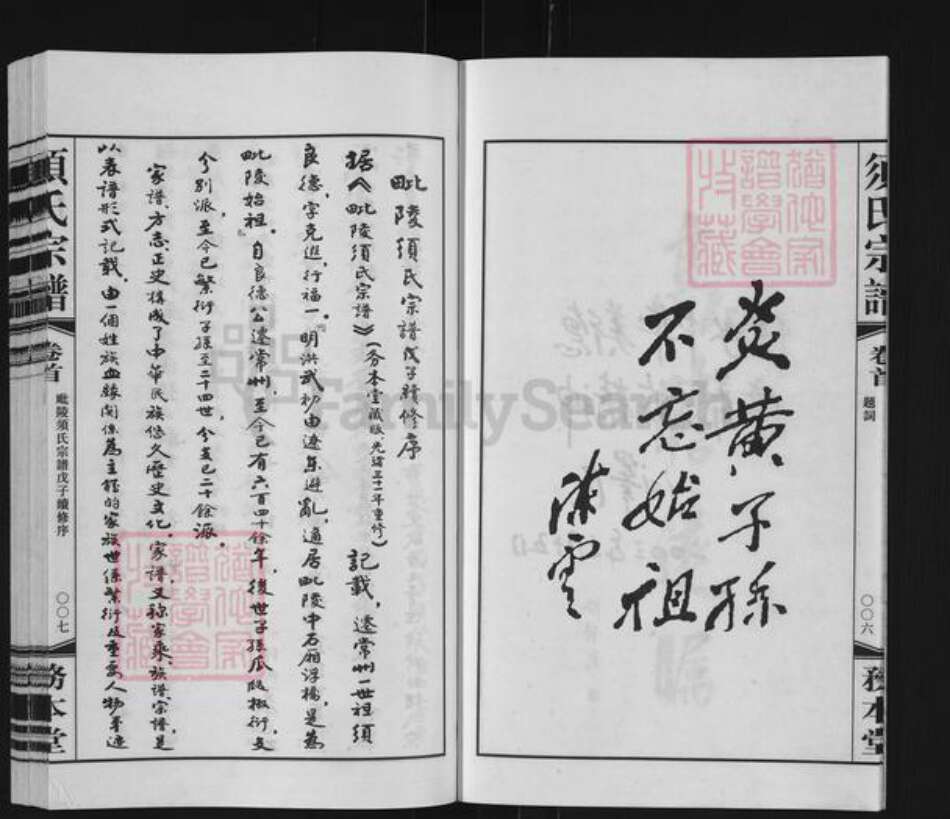 須氏宗譜
卷首
題詞
〇〇六
務本堂
炎黄子孫
不忘始祖
陳雲
毗陵須氏宗譜戊子續修序
据《毗陵須氏宗譜》（務本堂藏版、光緒三十一年重修）記載，遷常州一世祖須
良德，字克進，行福一。“明洪武初由遼東避亂，適居毗陵中石廂浮橋，是為
毗陵始祖。”自良德公遷常州，至今已有六百四十餘年，後世子孫瓜瓞椒衍支
分別派至今已繁衍子孫至二十四世，分支已二十餘派。
家譜、方志、正史構成了中華民族悠久歷史文化。家譜又稱家乘、族譜、宗譜，是
以表譜形式記載，由一個姓族血緣関係為主體的家族世係繁衍及重要人物事迹
須氏宗譜
卷首
毗陵須氏宗譜戊子續修序
〇〇七
務本堂
譜學會
收藏
FamilySearch